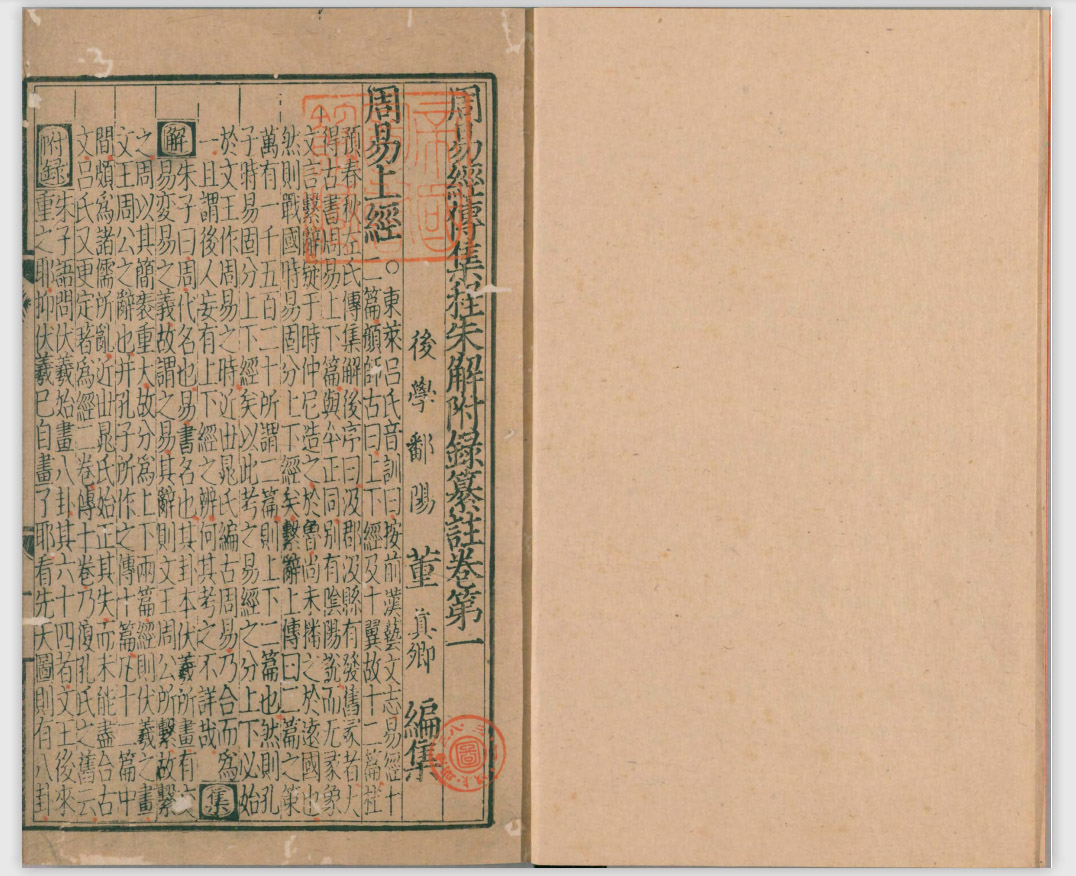 周易經傳集程朱解附録纂註卷第一
後學鄱陽董真卿編集
周易上經
○東萊呂氏音訓曰按前漢藝文志易經十
二篇顏師古曰上下經及十翼故十二篇杜
預春秋左氏傳集解後序曰汲郡汲縣有發舊冢者大
得古書周易上下篇與今正同別有陰陽說而无彖象
文言繫辭疑于時仲尼造之於魯尚未播之於遠國也
然則戰國時易固分上下經矣繫辭上傳曰二篇之策
萬有一千五百二十所謂二篇則上下二篇也然則孔
子時易固分上下經矣以此考之易經之分上下必始
於文王作周易之時近世晁氏編古周易乃合而為
一且謂後人妄有上下經之辨何其考之不詳哉
集
解
朱子曰周代名也易書名也其卦本伏羲所畫有交
易變易之義故謂之易其辭則文王周公所繫故繫
之周以其簡袠重大故分為上下兩篇經則伏羲之畫
文王周公之辭也并孔子所作之傳十篇凡十二篇中
間頗為諸儒所亂近世晁氏始正其失而未能盡合古
文呂氏又更定著為經二卷傳十卷乃復孔氏之舊云
附録
朱子語問伏羲始畫八卦其六十四者文王後來
重之耶抑伏羲已自畫了耶看先天圖則有八卦